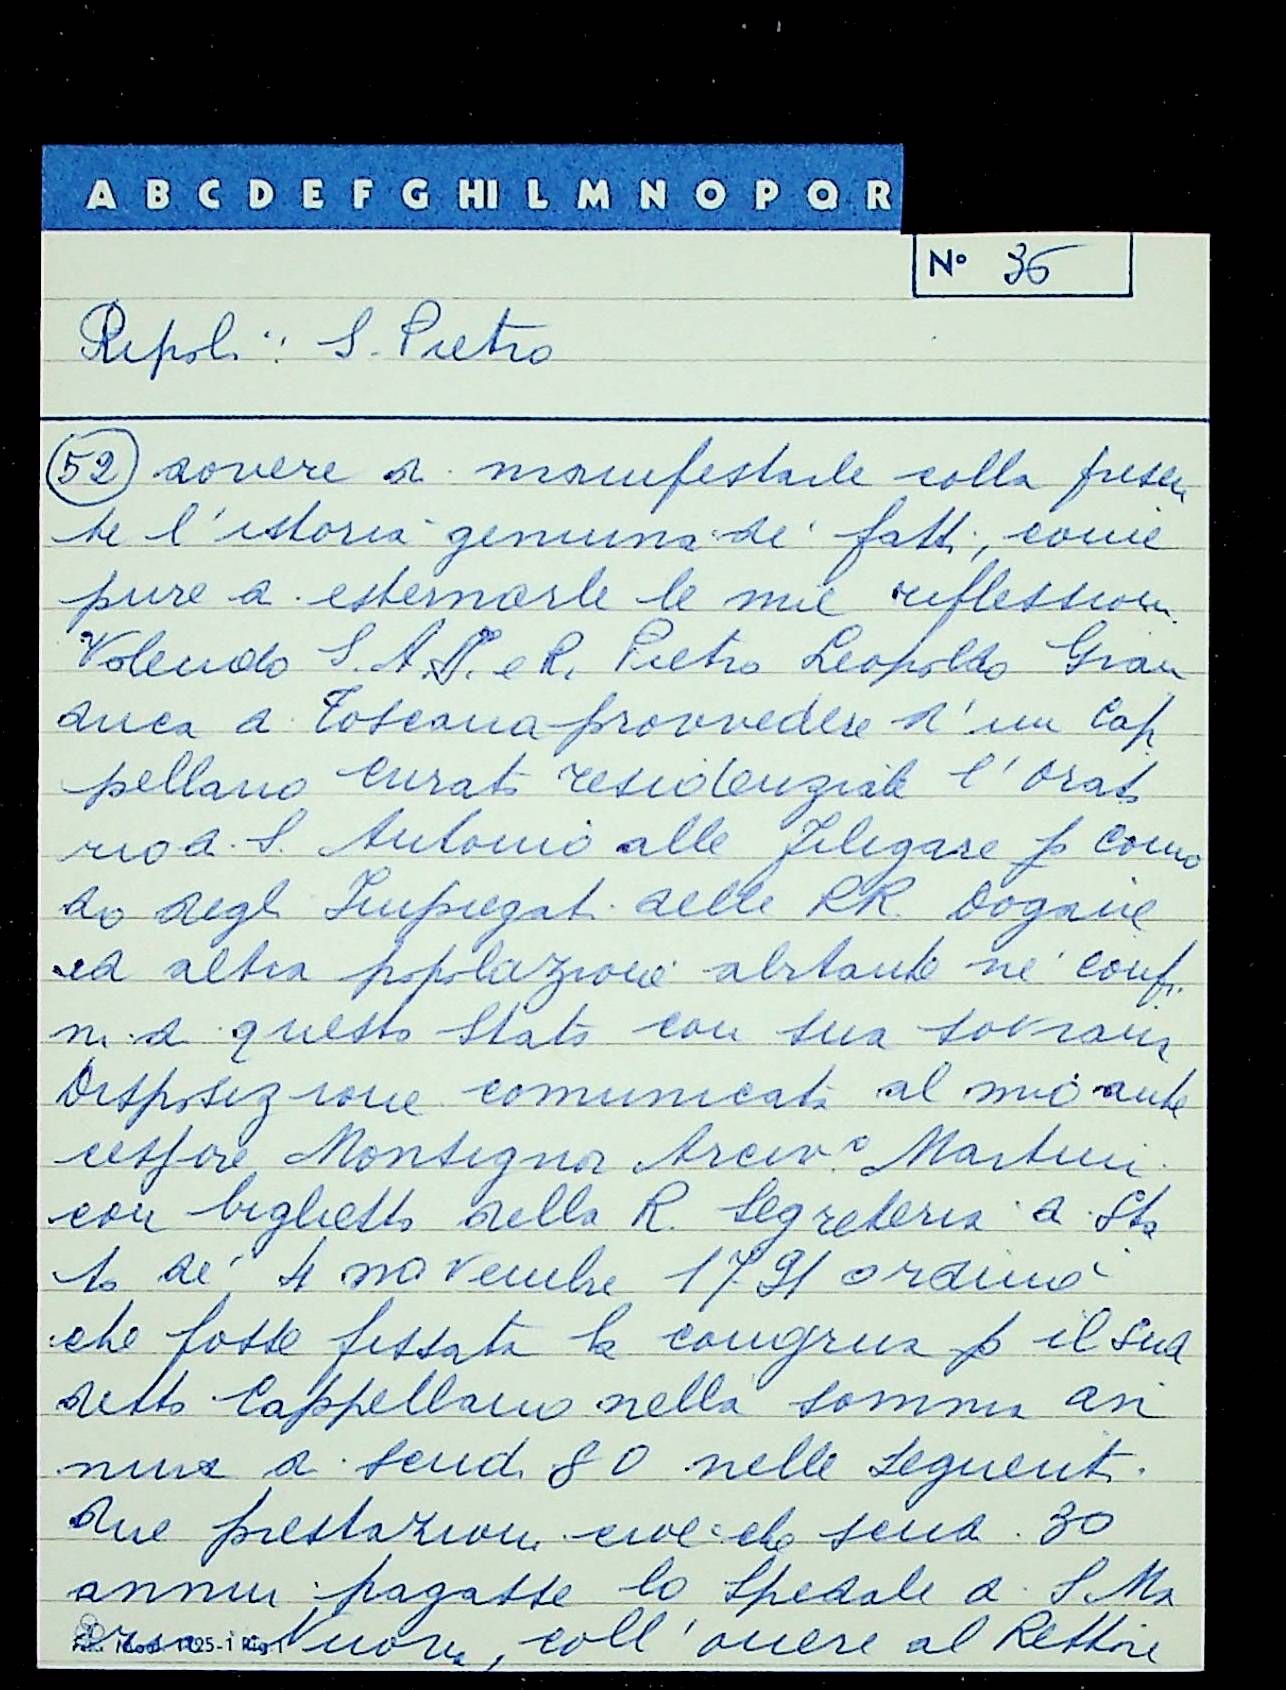 A B C D E F G HI L M N O P Q R
N° 36
Ripoli: S. Pietro
52 dovere di manifestarle colla presen
te l'istoria genuina de' fatti, come
pure di esternarle le mie riflessioni.
Volendo S. A. R. e R. Pietro Leopoldo Gran
duca di Toscana provvedere d'un Cap
pellano Curato residenziale l'Orato
rio di S. Antonio alle Filigare p como
do degli Impiegati delle RR. Dogane
ed altra popolazione abitante ne' confi
ni di questo Stato con sua sovrana
Disposizione comunicata al mio ante
cessore Monsignor Arciv.o Martini
con biglietto della R. Segreteria di Sta
to de' 4 novembre 1791 ordinò
che fosse fissata la congrua p il sud
detto Cappellano nella somma an
nua di scudi 80 nelle seguenti
due prestazioni cioè che scudi 30
annui pagasse lo Spedale di S. Ma
ria Nuova, coll'onere al Rettore
Mod. 1125-1 Rig.